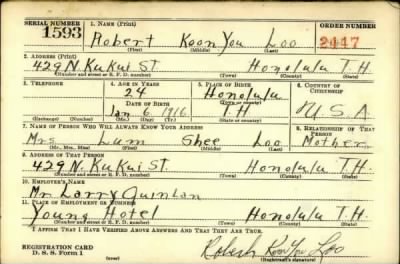 SERIAL NUMBER 1. NAME (Print) ORDER NUMBER
1593 Robert Koon You Loo 2447
(First) (Middle) (Last)
2. ADDRESS (Print)
429 N. Kukui St. Honolulu T.H.
(Number and street or R. F. D. number) (Town) (County) (State)
3. TELEPHONE 4. AGE IN YEARS 5. PLACE OF BIRTH 6. COUNTRY OF CITIZENSHIP
24 Honolulu
DATE OF BIRTH (Town or county)
Jan 6 1916 T.H U.S.A
(Exchange) (Number) (Mo.) (Day) (Yr.) (State or country)
7. NAME OF PERSON WHO WILL ALWAYS KNOW YOUR ADDRESS 8. RELATIONSHIP OF THAT PERSON
Mrs. Lum Shee Loo Mother
(Mr., Mrs., Miss) (First) (Middle) (Last)
9. ADDRESS OF THAT PERSON
429 N. Kukui St. Honolulu T.H.
(Number and street or R. F. D. number) (Town) (County) (State)
10. EMPLOYER'S NAME
Mr. Larry Quinlan
11. PLACE OF EMPLOYMENT OR BUSINESS
Young Hotel Honolulu T.H.
(Number and street or R. F. D. number) (Town) (County) (State)
I AFFIRM THAT I HAVE VERIFIED ABOVE ANSWERS AND THAT THEY ARE TRUE.
REGISTRATION CARD Robert Koon You Loo
D. S. S. Form 1 (over) (Registrant's signature)